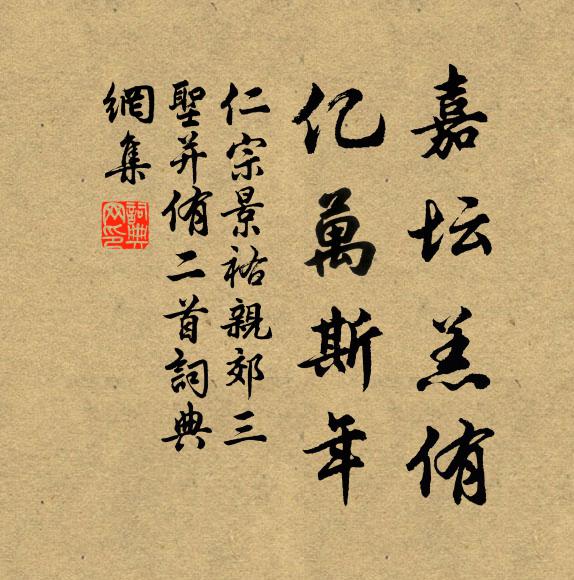 嘉坛羔侑
亿萬斯年
仁宗景祐親郊三
聖并侑二首詞典
網集
詞典
网印